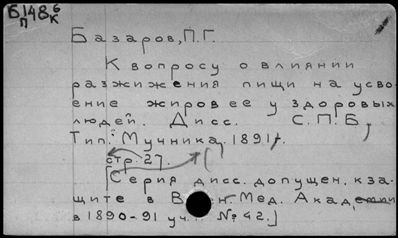 Б148 6
П К
Базаров, П.Г.
К вопросу о влиянии
разжижения пищи на усво-
ение жиров ее у здоровых
людей. Дисс. С.П.Б.,
Тип. Мучника, 1891.
стр. 27.
[Серия дисс. допущен. к за-
щите в В. Мед. Академии
в 1890-91 уч. № 42.]